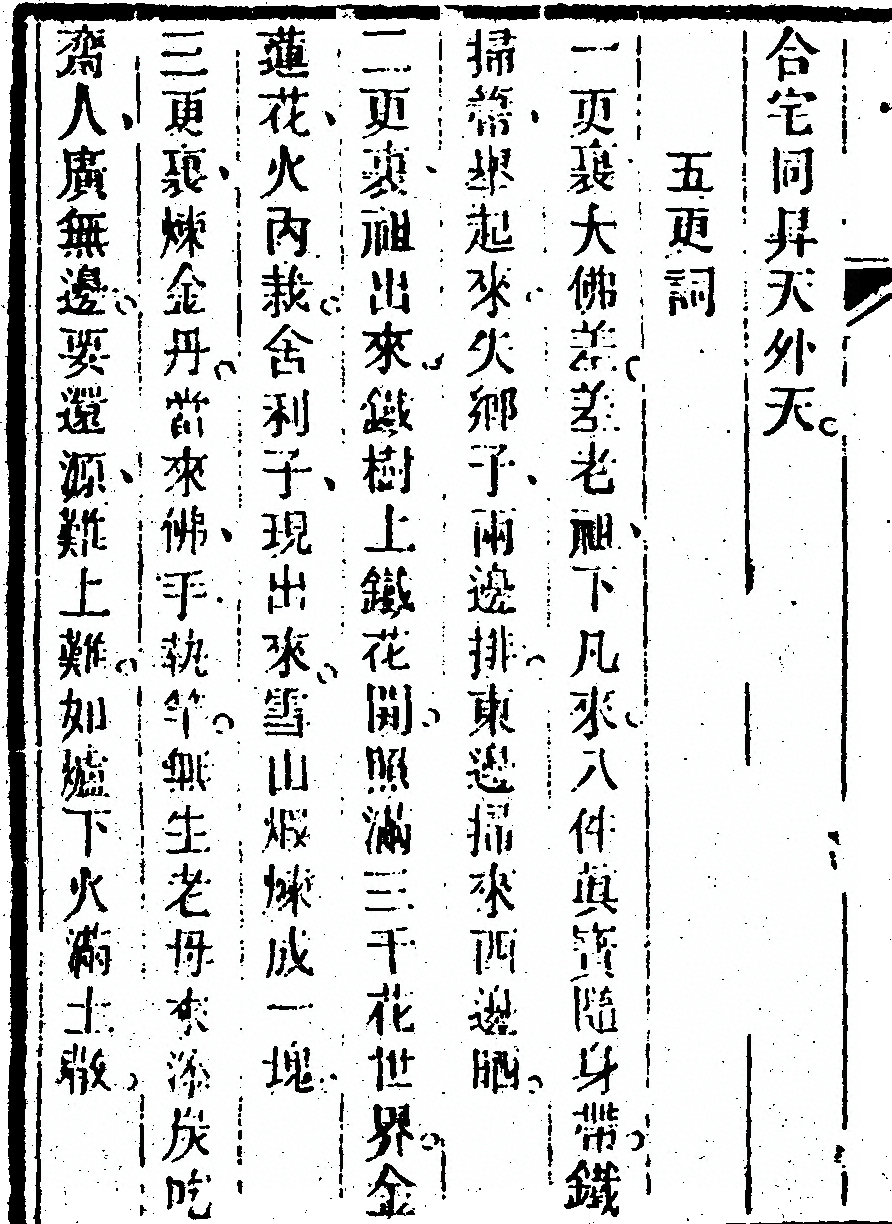 合宅同昇天外天。
五更詞
一更裏大佛差。差老祖、下凡來。八件真寶隨身帶。鐵
掃箒、舉起來。失鄉子、兩邊排。東邊掃來西邊晒。
二更裏、祖出來。鐵樹上鐵花開。照滿三千花世界。金
蓮花、火內栽。舍利子、現出來。雪山煆煉成一塊。
三更裏、煉金丹。當來佛、手執竿。無生老母來添炭。吃
齋人、廣無邊。要還源、難上難。如爐下火滿土散。